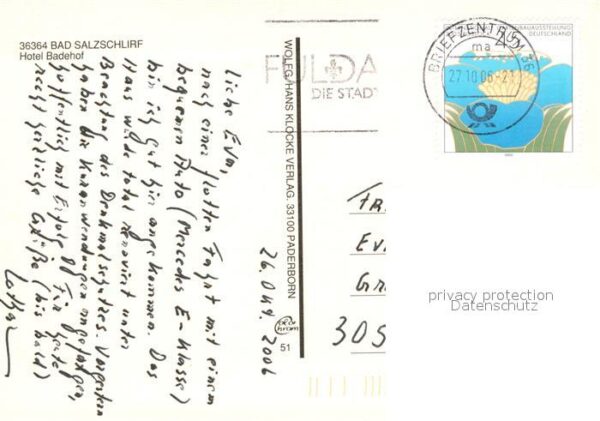 36364 BAD SALZSCHLIRF
Hotel Badehof
Liebe Eva,
nach einer flotten Fahrt mit einem
bequemen Auto (Mercedes E-Klasse)
bin ich gut hier angekommen. Das
Haus wurde total renoviert unter
Beachtung des Denkmalschutzes. Vorgestern
haben die Kuranwendungen angefangen,
hoffentlich mit Erfolg. Für heute
recht herzliche Grüße (bis bald)
Lothar
26. Okt. 2006
WOLFG. HANS KLOCKE VERLAG, 33100 PADERBORN
51
FULDA
DIE STADT
BRIEFZENTRUM 36
ma
27.10.06-21
DEUTSCHLAND
305
privacy protection
Datenschutz